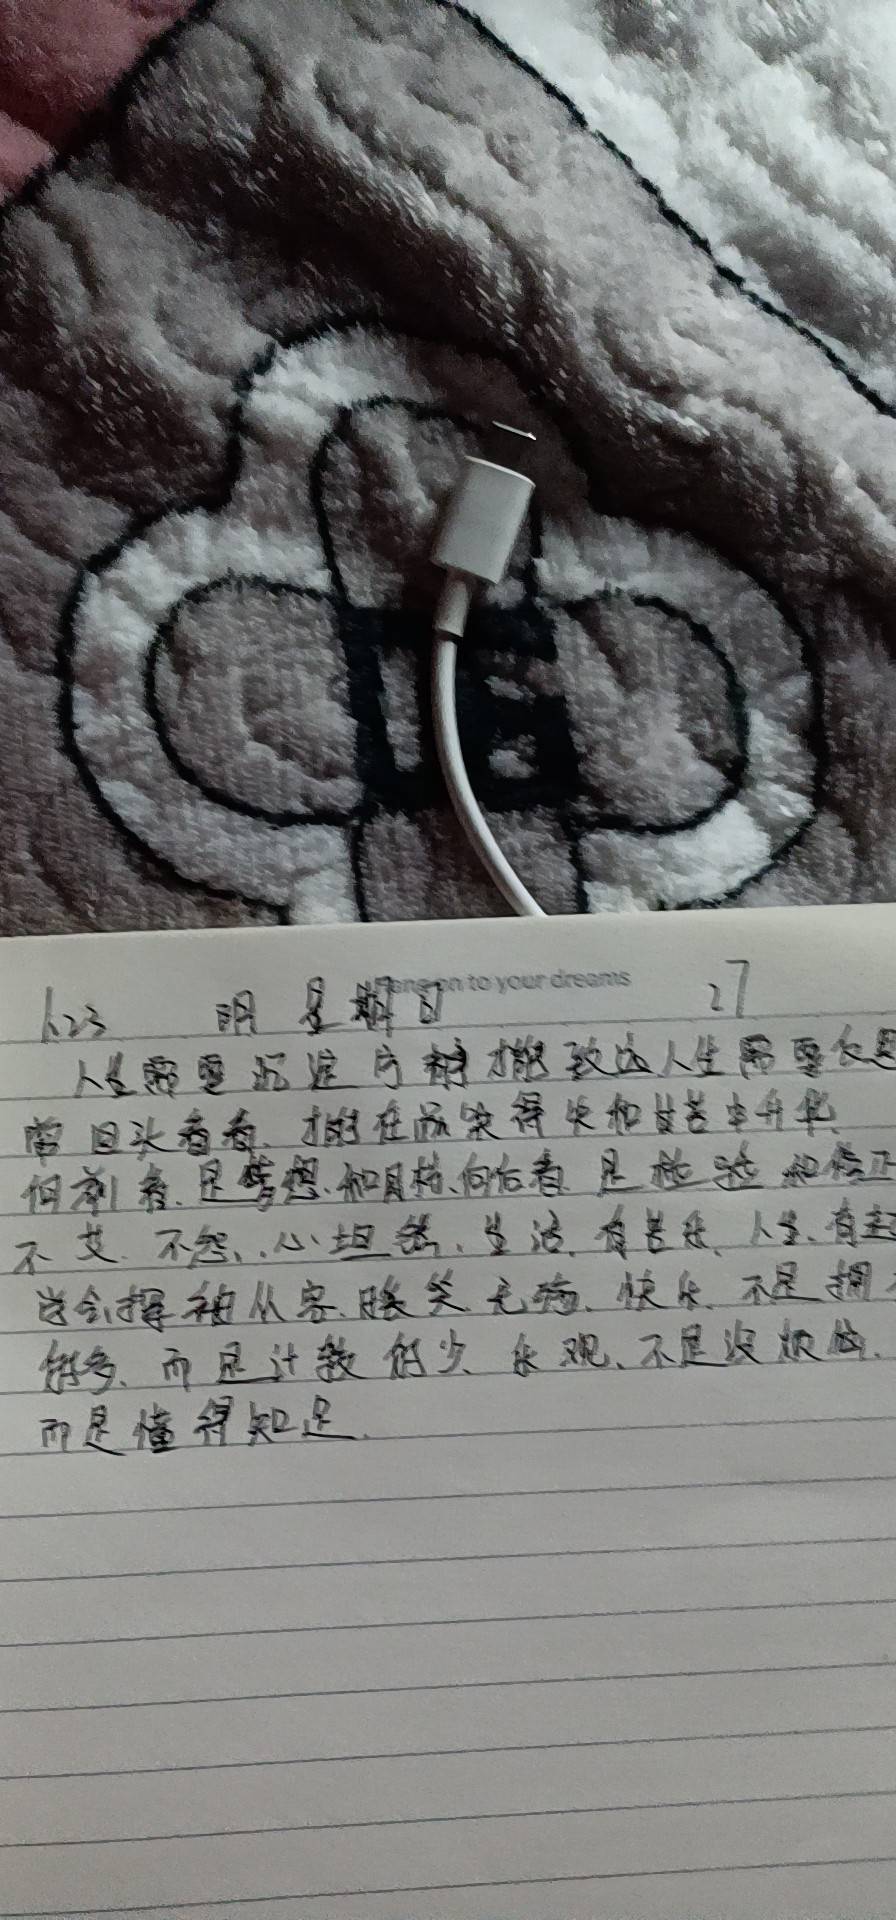 1.23 阴 星期日 27
Hang on to your dreams
人生需要沉淀 才能致远人生需要反思
常回头看看、才能在品味得失和甘苦中升华
向前看、是梦想、和目标、向后看 是检验 和修正
不艾、不怨、心坦然、生活、有苦乐、人生、有起
学会挥袖从容、暖笑、无殇、快乐、不是拥有
的多、而是计较的少、乐观、不是没烦恼、
而是懂得知足、